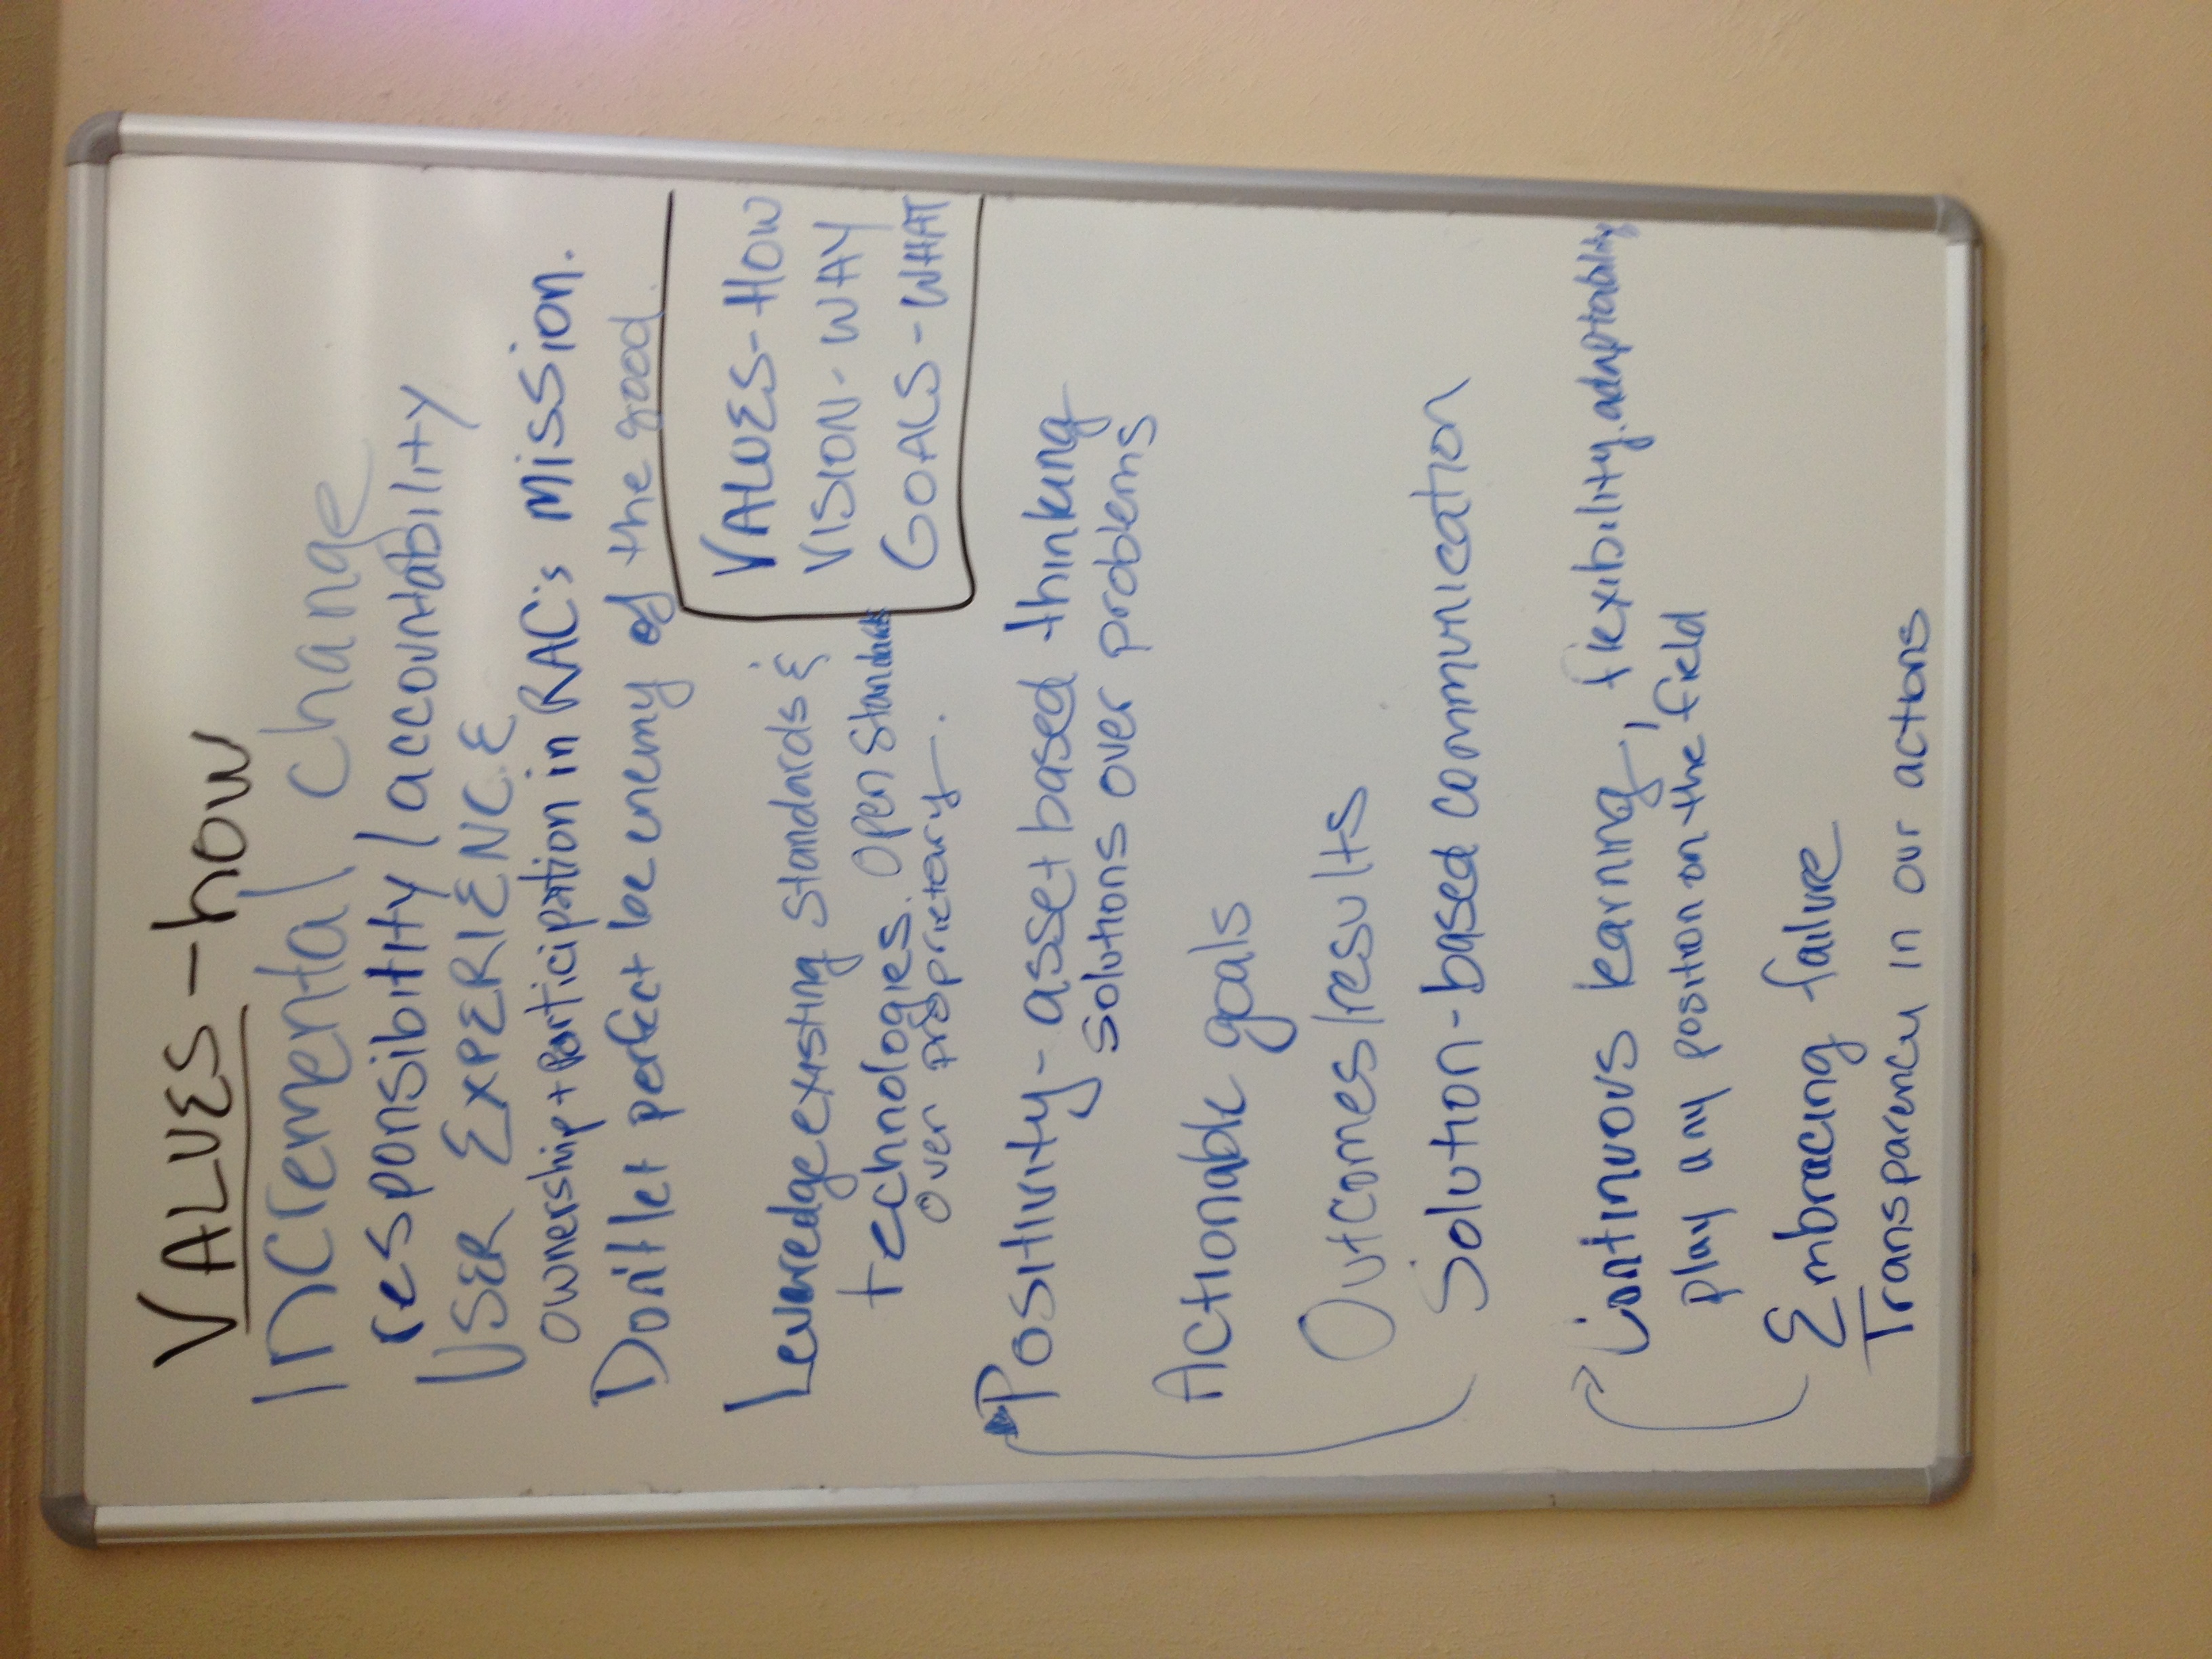 VALUES - how
Incremental change
responsibility / accountability
USER EXPERIENCE
Ownership + Participation in RAC's mission.
Don't let perfect be enemy of the good.
Leveredge existing standards &
technologies. Open Standards
over proprietary.
VALUES - HOW
VISION - WAY
GOALS - WHAT
Positivity - asset based thinking
solutions over problems
Actionable goals
Outcomes/results
Solution-based communication
Continuous learning, flexibility. adaptability
play any position on the field
Embracing failure
Transparency in our actions